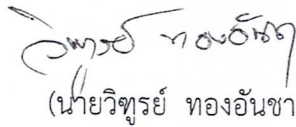 วิฑูรย์ ทองอันชา
(นายวิฑูรย์ ทองอันชา